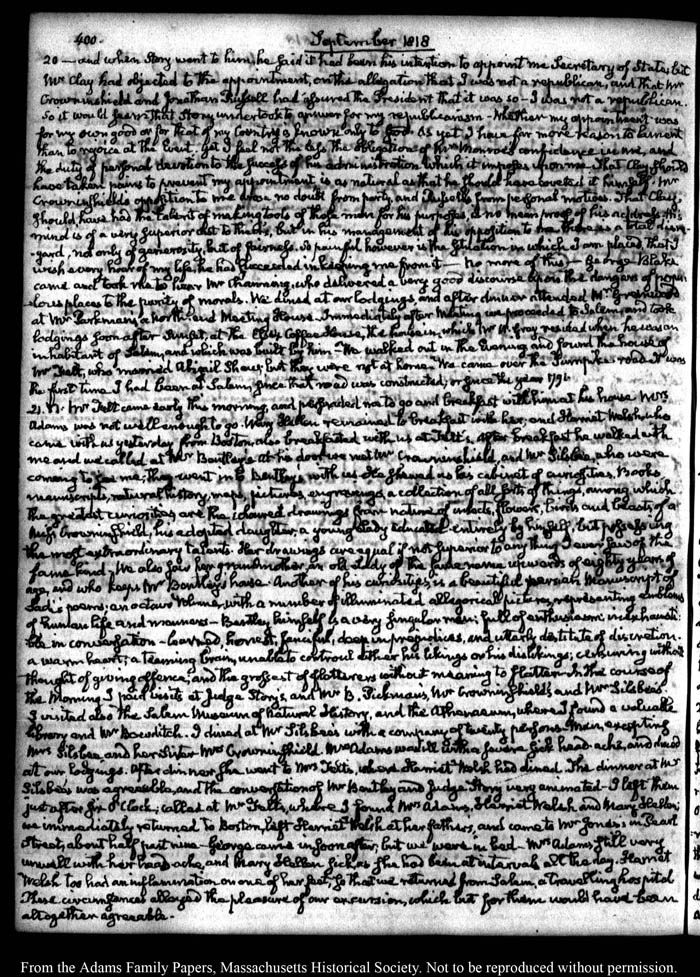 400.
September 1818
20 — and when Story went to him, he said it had been his intention to appoint me Secretary of State, but
Mr Clay had objected to the appointment, on the allegation that I was not a republican, and that Mr
Crowninshield and Jonathan Russell had assured the President that it was so — I was not a republican.
So it would seem that Story undertook to answer for my republicanism — Whether my appointment was
for my own good or for that of my Country is known only to God. As yet I have far more reason to lament
than to rejoice at the Event. yet I feel not the less the obligation of Mr Monroe's confidence in me, and
the duty of personal devotion to the success of his administration which it imposes upon me. That Clay should
have taken pains to prevent my appointment is as natural as that he should have coveted it himself. Mr
Crowninshield's opposition to me arose no doubt from party, and Russell's from personal motives. That Clay
should have had the talent of making tools of those men for his purposes, is no mean proof of his address. His
mind is of a very superior cast to theirs, but in his management of his opposition to me there is a total disre-
-gard, not only of generosity, but of fairness. So painful however is the situation in which I am placed, that I
wish every hour of my life, he had succeeded in keeping me from it — no more of this — George Blake
came and took me to hear Mr Channing, who delivered a very good discourse upon the dangers of popu-
-lous places to the purity of morals. We dined at our lodgings, and after dinner attended Mr Greenwood
at Mr Parkman's north end Meeting House. Immediately after Meeting we proceeded to Salem, and took
lodgings soon after Sunset, at the Essex Coffee House, the house in which Mr W. Gray resided when he was an
inhabitant of Salem, and which was built by him — We walked out in the Evening and found the house of
Mr Felt, who married Abigail Shaw; but they were not at home. We came over the Turnpike road. It was
the first time I had been at Salem, since that road was constructed, or since the year 1796.
21. Mr Felt came early this morning, and persuaded me to go and breakfast with him at his house. Mrs
Adams was not well enough to go. Mary Hellen remained to breakfast with her; and Harriet Welsh who
came with us yesterday from Boston, also breakfasted with us at Felt's. After breakfast he walked with
me and we called at Mr Bentley's. At his door we met Mr Crowninshield, and Mr Silsbee, who were
coming to see me; they went in to Bentley's with us. He shewed us his cabinet of curiosities. Books
manuscripts, natural history, maps, pictures, engravings, a collection of all sorts of things, among which
the greatest curiosities are the coloured drawings from nature of insects, flowers, birds and beasts, of a
Miss Crowninshield, his adopted daughter, a young Lady educated entirely by himself, but possessing
the most extraordinary talents. Her drawings are equal if not superior to any thing I ever saw of the
same kind. We also saw her grandmother, an old Lady of the same name upwards of eighty years of
age, and who keeps Mr Bentley's house. Another of his curiosities, is a beautiful persian Manuscript of
Sadi's poems; an octavo Volume, with a number of illuminated allegorical pictures, representing emblems
of human life and manners — Bentley himself is a very singular man; full of enthusiasm; inexhausti-
ble in conversation — learned, honest, fanciful, deep in prejudices, and utterly destitute of discretion.
a warm heart; a teeming brain, unable to controul either his likings or his dislikings; censuring without
thought of giving offence; and the grossest of flatterers without meaning to flatter. In the course of
the Morning I paid visits at Judge Story's, and Mr D. Pickman's, Mr Crowninshield's and Mr Silsbee's.
I visited also the Salem Museum of Natural History, and the Athenaeum, where I found a valuable
library and Mr Bowditch. I dined at Mr Silsbee's with a company of twenty persons. Men, excepting
Mrs Silsbee and her Sister Mrs Crowninshield. Mrs Adams was ill with a severe sick head-ache, and dined
at our lodgings. After dinner she went to Mrs Felt's, where Harriet Welsh had dined. The dinner at Mr
Silsbee's was agreeable, and the conversation of Mr Bentley and Judge Story very animated — I left them
just after six O'Clock; called at Mr Felt's, where I found Mrs Adams, Harriet Welsh and Mary Hellen;
we immediately returned to Boston, left Harriet Welsh at her father's, and came to Mr Jones's in Pearl
Street, about half past nine — George came in soon after, but we were in bed — Mrs Adams still very
unwell with her head-ache, and Mary Hellen sick as she had been at intervals all the day. Harriet
Welsh too had an inflammation on one of her feet, so that we returned from Salem, a travelling hospital
These circumstances alloyed the pleasure of our excursion, which but for them would have been
altogether agreeable.
From the Adams Family Papers, Massachusetts Historical Society. Not to be reproduced without permission.